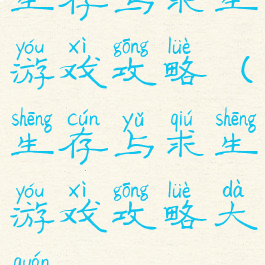 生存与求生
yóu xì gōng lüè
游戏攻略（
shēng cún yǔ qiú shēng
生存与求生
yóu xì gōng lüè dà
游戏攻略大
quán